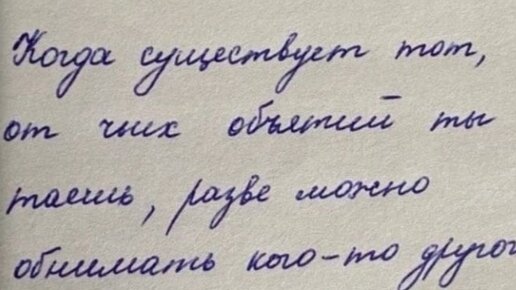 Когда существует тот,
от чьих объятий ты
таешь, разве можно
обнимать кого-то другог